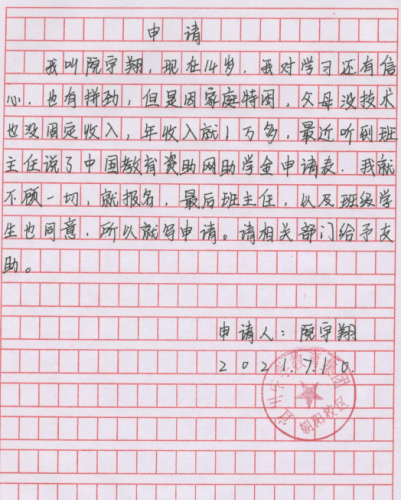 申请
我叫阮宇翔，现在14岁，我对学习还有信
心，也有拼劲，但是因家庭特困，父母没技术
也没固定收入，年收入就1万多，最近听到班
主任说了中国教育资助网助学金申请表，我就
不顾一切，就报名，最后班主任，以及班级学
生也同意，所以就写申请。请相关部门给予支
助。
申请人：阮宇翔
2021.7.10.
朝阳校区